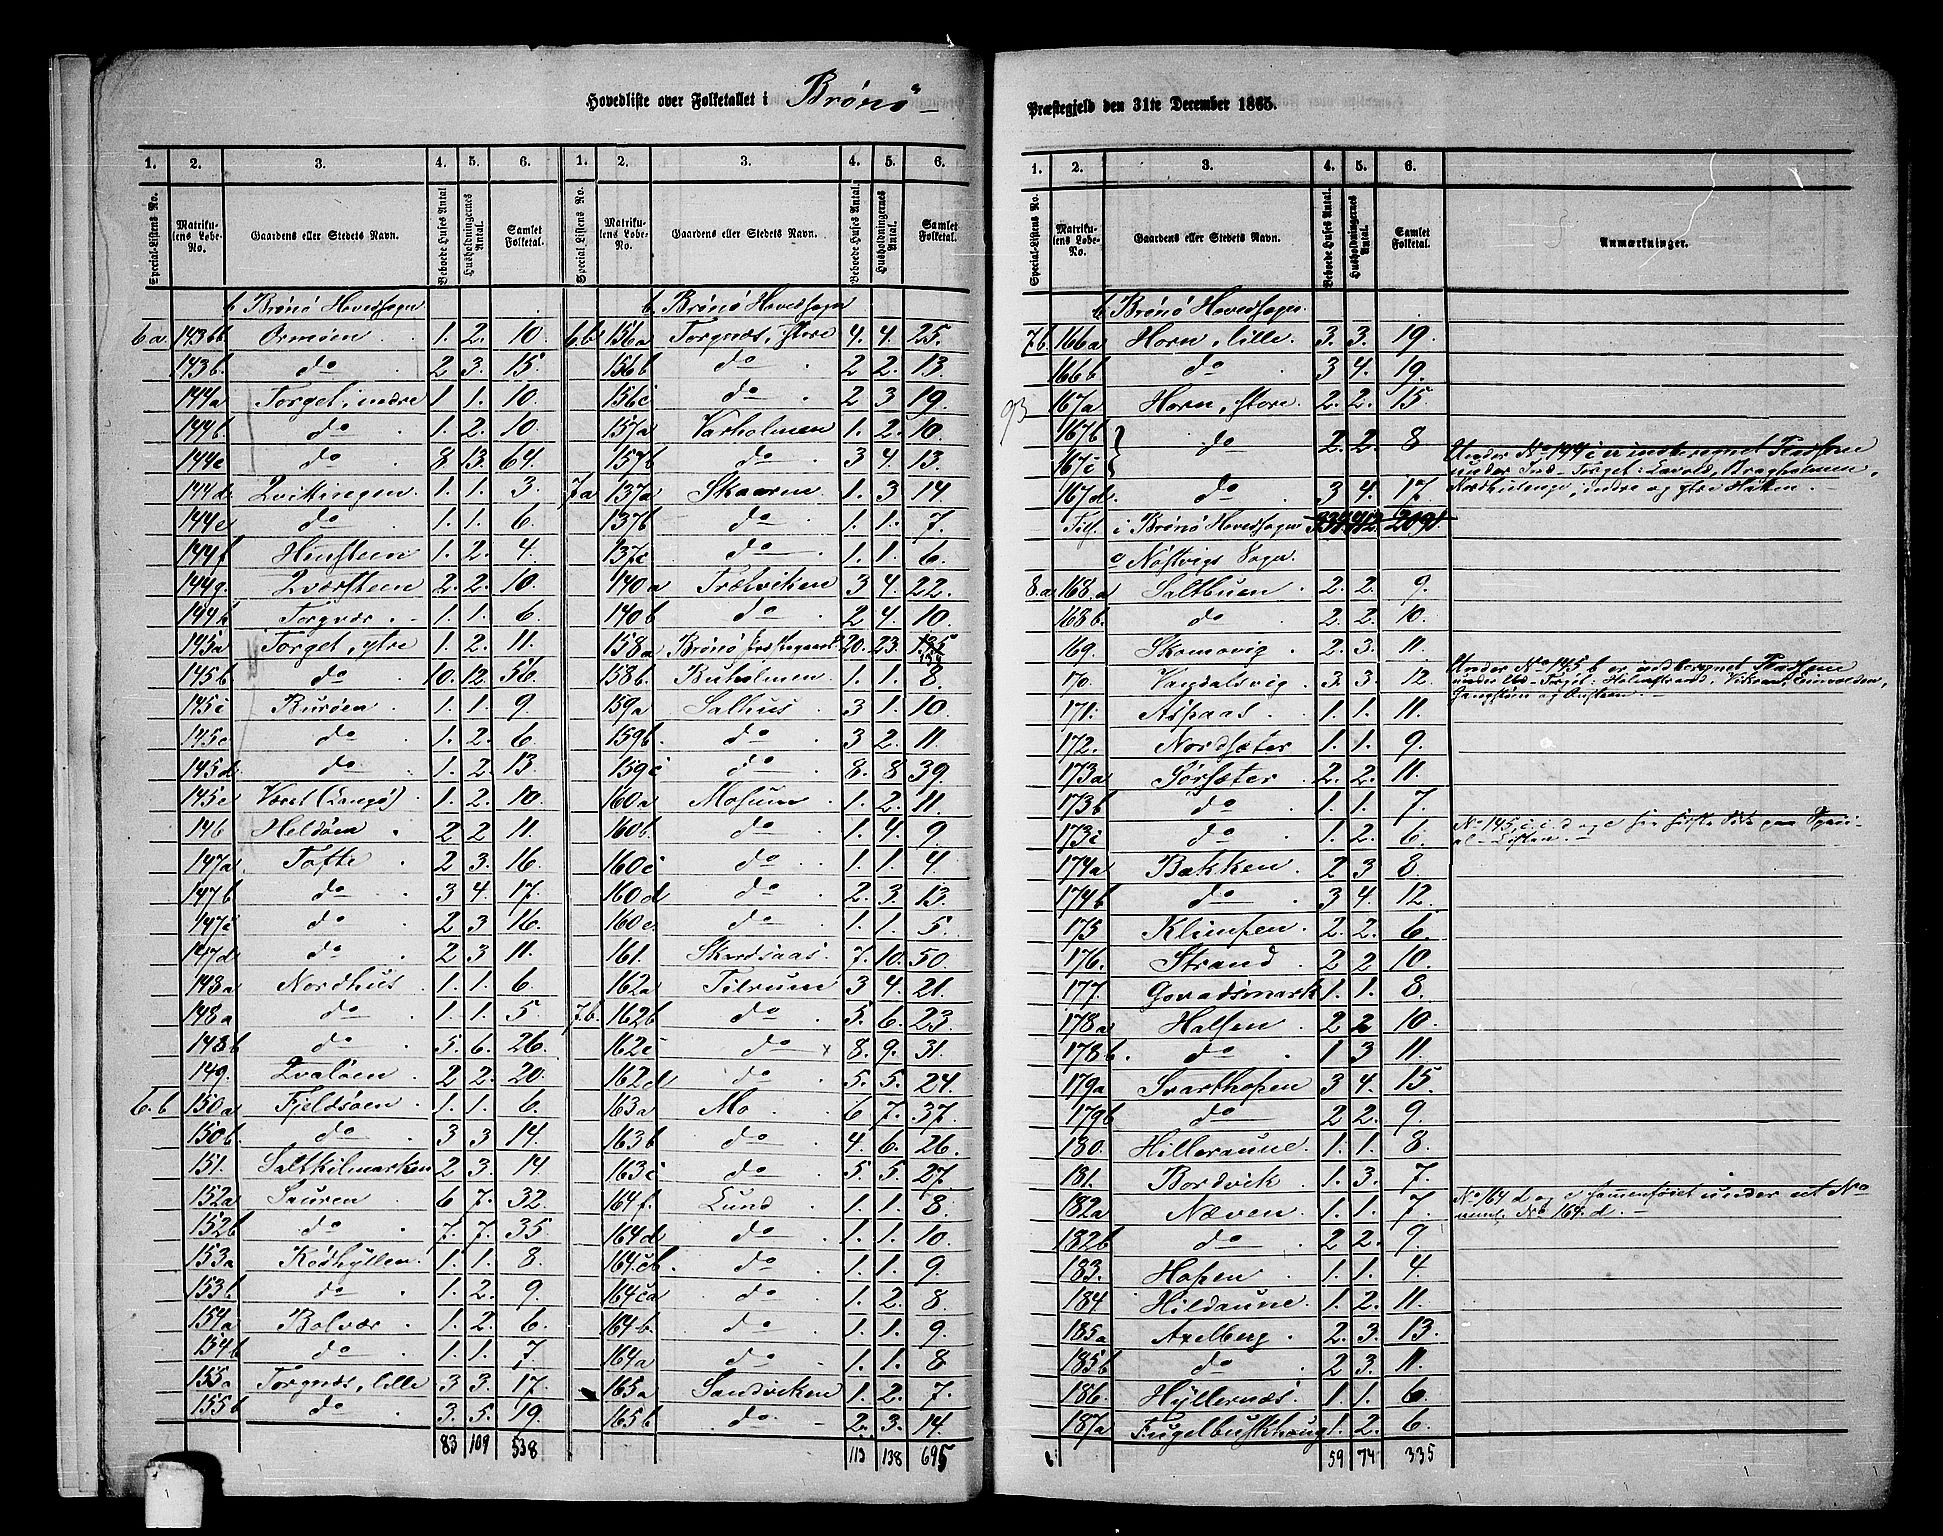 Hovedliste over Folketallet i Brönö
Præstegjeld den 31te December 1865.
1. 2. 3. 4. 5. 6. 1. 2. 3. 4. 5. 6.
Special-Listens No. Matrikulens Løbe-No. Gaardens eller Stedets Navn. Beboede Huses Antal Husholdningernes Antal. Samlet Folketal. Special Listens No. Matrikulens Løbe-No. Gaardens eller Stedets Navn. Beboede Huses Antal. Husholdningernes Antal. Samlet Folketal.
b Brönö Hovedsogn b Brönö Hovedsogn
6a. 143bb Ormöen 1. 2. 10. 6b 156a Torgnæs, store 4. 4. 25.
143b. do 2 3. 15. 156b do 2 2. 13.
144a Torget, indre 1. 1. 10. 156c do 2 3 19.
144b. do 1. 2. 10. 157a Varholmen 1. 2. 10.
144c do 8. 13. 64. 157b do 3 4. 13.
144d. Qvitingen 1. 1. 3. 7a 137a Skaaren 1. 3 14.
144e do 1. 1. 6. 137b do 1. 1. 7.
144f Hensteen 1. 2. 4. 137c do 1. 1. 6.
144g. Qværsteen 2. 2. 10. 140a Trælviken 3 4. 22.
144h Torgvær 1. 1. 6. 140b do 2 4. 10.
145a Torget, ytre 1. 2. 11. 158a Brönö Præstegaard 20. 23. 135 134
145b do 10. 12. 56. 158b. Buholmen 1. 1. 8.
145c Buröen 1. 1. 9. 159a Salhus 3 1. 10.
145c do 1. 2. 6. 159b. do 3 2. 11.
145d do 1. 2. 13. 159c do 8. 8 39.
145e Været (Langö) 1. 2. 10. 160a Mosum 1. 2 11.
146 Heldöen 2 2 11. 160b. do 1. 4. 9.
147a Tofte 2 3. 16. 160c do 1. 1. 4.
147b do 3 4. 17. 160d do 2. 3. 13.
147c do 2 3 16. 160e. do 1. 1. 5.
147d do 2 3 11. 161. Skardsaas 7. 10. 50.
148a Nordhus 1. 1. 6. 162a Tilrum 3 4. 21.
148a do 1. 1. 5 7b. 162b do 5. 6. 23.
148b do 5. 6. 26. 162c do 8. 9. 31.
149. Qvalöen 2 2. 20. 162d do 5. 5. 24.
6.b 150a Fjeldsöen 1. 1. 6. 163a Mo 6 7. 37.
150b do 3 3 14. 163b do 4. 6. 26.
151. Saltkilmarken 2 3. 14 163c do 5. 5. 27.
152a Sauren 6 7. 32. 164f. Lund 1. 1. 8.
152b do 7. 7. 35. 164d do 1. 1. 10.
153a Rödhyllen 1. 1. 8. 164cb. do 1. 1. 9.
153b do 1. 2. 9. 164ca do 1. 2. 8.
154a Bolvær 1. 2. 6. 164b. do 1. 1. 9.
154b do 1. 1. 7. 164a do 1. 1. 8
155a Torgnæs, lille 3 3. 17. 165a Sandviken 1. 2. 7.
155b do 3. 5. 19. 165b do 2. 3. 14.
83 109 538 113 138 695
1. 2. 3. 4. 5. 6.
Special-Listens No. Matrikulens Løbe-No. Gaardens eller Stedets Navn. Beboede Huses Antal. Husholdningernes Antal. Samlet Folketal. Anmærkninger.
b Brönö Hovedsogn.
7b. 166a Horn, lille 3. 3. 19.
166b do 3 4. 19.
93 167a Horn, store. 2. 2. 15.
167b } do 2. 2. 8
167c
167d. do 3 4. 17.
Under No 144c er indberegnet Pladsene
under Ind-Torget: Lavold, Bragholmen,
indre og ytre Haken.
Tils. i Brönö Hovedsogn 334 412 2091
c Nöstvigs Sogn.
8.a 168.a Saltbuen 2. 2. 9.
168b. do 2. 2. 10.
169. Skomovig 2. 3. 11.
170. Vandalsvig 3. 3. 12.
Under No 145b er indberegnet Pladsene
under Ud-Torget: Holmstrand,
171. Aspaas 1. 1. 11.
172. Nordsæter 1. 1. 9.
173a Sörsæter 2. 2. 11.
173b do 1. 1. 7.
173c do 1. 2. 6.
No 145,
174a Bakken 2 3 8.
174b do 3 4. 12.
175 Klimpen 2. 2. 6.
176. Strand 2 2 10.
177. Govadsmark 1. 1. 8.
178a Halsen 2 2 10.
178b. do 1. 3 11.
179a Svarthopen 3 4. 15.
179b do 2 2. 9.
180. Hilleraune 1. 1. 8.
181. Bordvik 1. 3. 7.
182a Næven 1. 1. 7.
No 164 d og e sammenföiet under et No
neml. No 164.d.
182b do 2 2. 9.
183. Hopen 1. 1. 4.
184 Hildaune 1. 2. 11.
185a Axelberg 2. 3. 13.
185b do 2 3. 11.
186. Hyllernæs 1. 1. 6.
187a Fugelbusthaug 1. 2. 6.
59 74 335